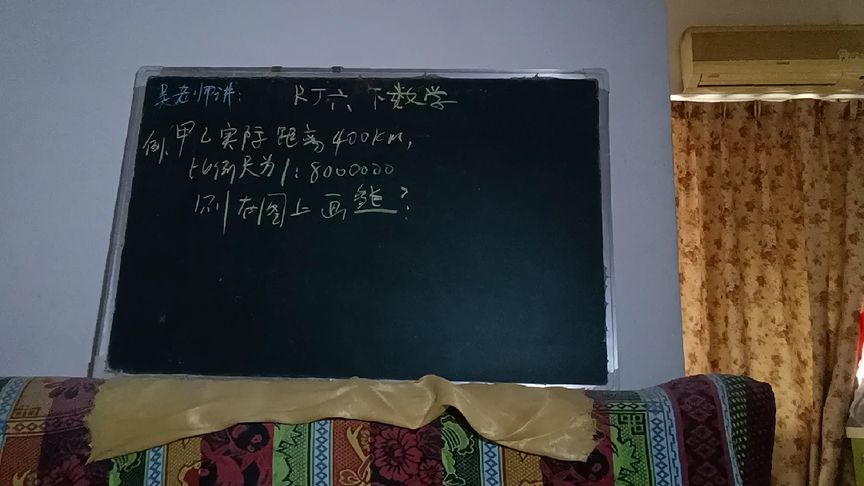 吴老师讲: RJ六下数学
例、甲乙实际距离400km,
比例尺为1:8000000
则在图上画 ?